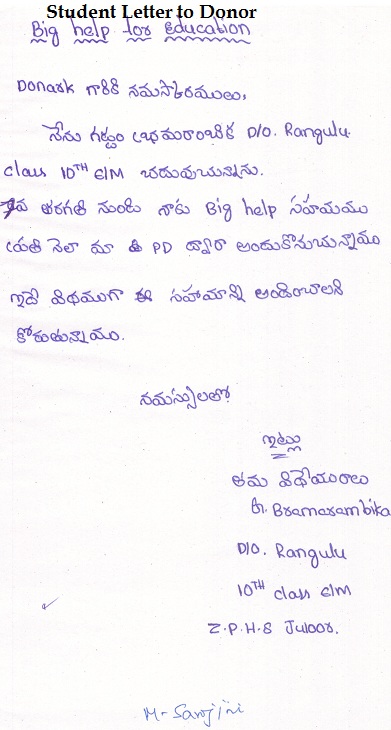 Student Letter to Donor
Big help for Education
Donark గారికి నమస్కారములు,
నేను గట్టుం భ్రమరాంబిక D/O. Rangulu
class 10TH E/M చదువుచున్నాను.
7వ తరగతి నుండి నాకు Big help సహాయము
ప్రతి నెలా మా PD ద్వారా అందుకొనుచున్నాము
ఇదే విధముగా ఈ సహాయాన్ని అందించాలని
కోరుతున్నాము.
నమస్సులతో
ఇట్లు
తమ విధేయురాలు
G. Bramarambika
D/O. Rangulu
10TH class E/M
Z.P.H.S Juloor.
M-Sarojini